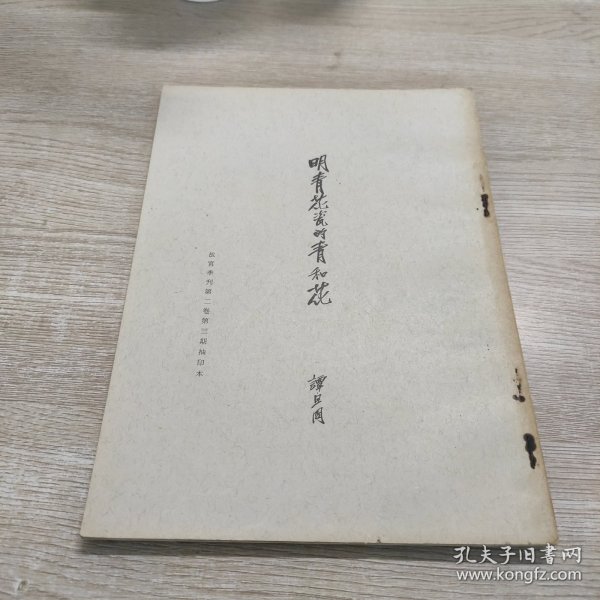 明青花瓷的青和花
譚旦冏
故宮季刊第二卷第三期抽印本
孔夫子旧书网
www.kongfz.com